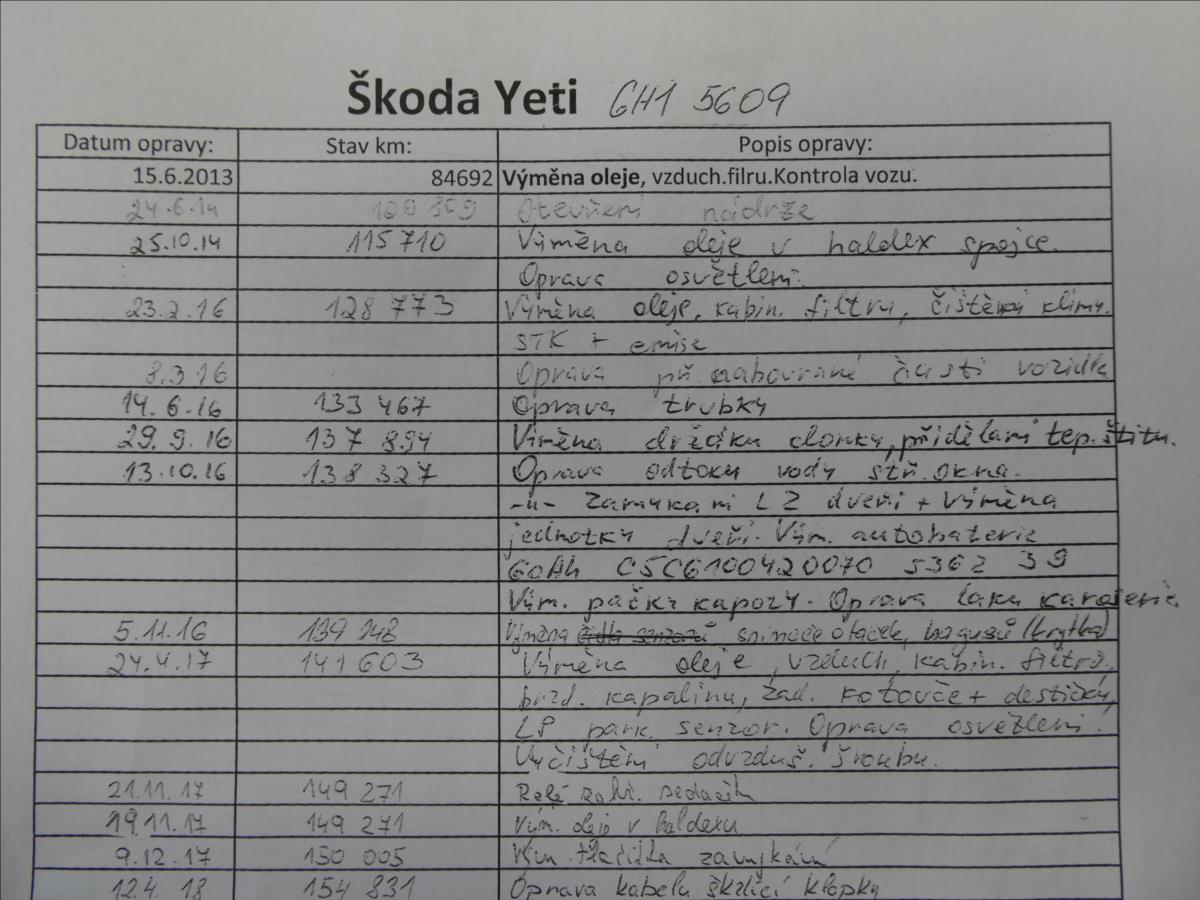 Škoda Yeti 6H1 5609
Datum opravy: Stav km: Popis opravy:
15.6.2013 84692 Výměna oleje, vzduch.filru.Kontrola vozu.
24.6.14 100 809 Otevření nádrže
25.10.14 115 710 Výměna oleje v haldex spojce.
Oprava osvětlení.
23.2.16 128 773 Výměna oleje, kabin. filtru, čištění klimy.
STK + emise
8.3.16 Oprava př. nabourané části vozidla
14.6.16 133 467 Oprava trubky
29.9.16 137 894 Výměna držáku clonky, přidělaní tep. štítu.
13.10.16 138 327 Oprava odtoku vody stř. okna.
-u- zamykaní LZ dveří + Výměna
jednotky dveří. Vým. autobaterie
60Ah C5C6100420070 5362 39
Vým. páčky kapoty. Oprava laku karoserie.
5.11.16 139 748 Výměna čidla senzorů snímače otáček, (krytka)
24.4.17 141 603 Výměna oleje, vzduch, kabin. filtrů,
brzd. kapalinu, zad. kotouče + destičky,
LP park. senzor. Oprava osvětlení.
Vyčištění odvzduš. šroubu.
21.11.17 149 271 Relé sedaček
19.11.17 149 271 Vým. oleje v haldexu
9.12.17 150 005 Vým. tlačítka zamykání
12.4.18 154 831 Oprava kabelu škrtící klapky